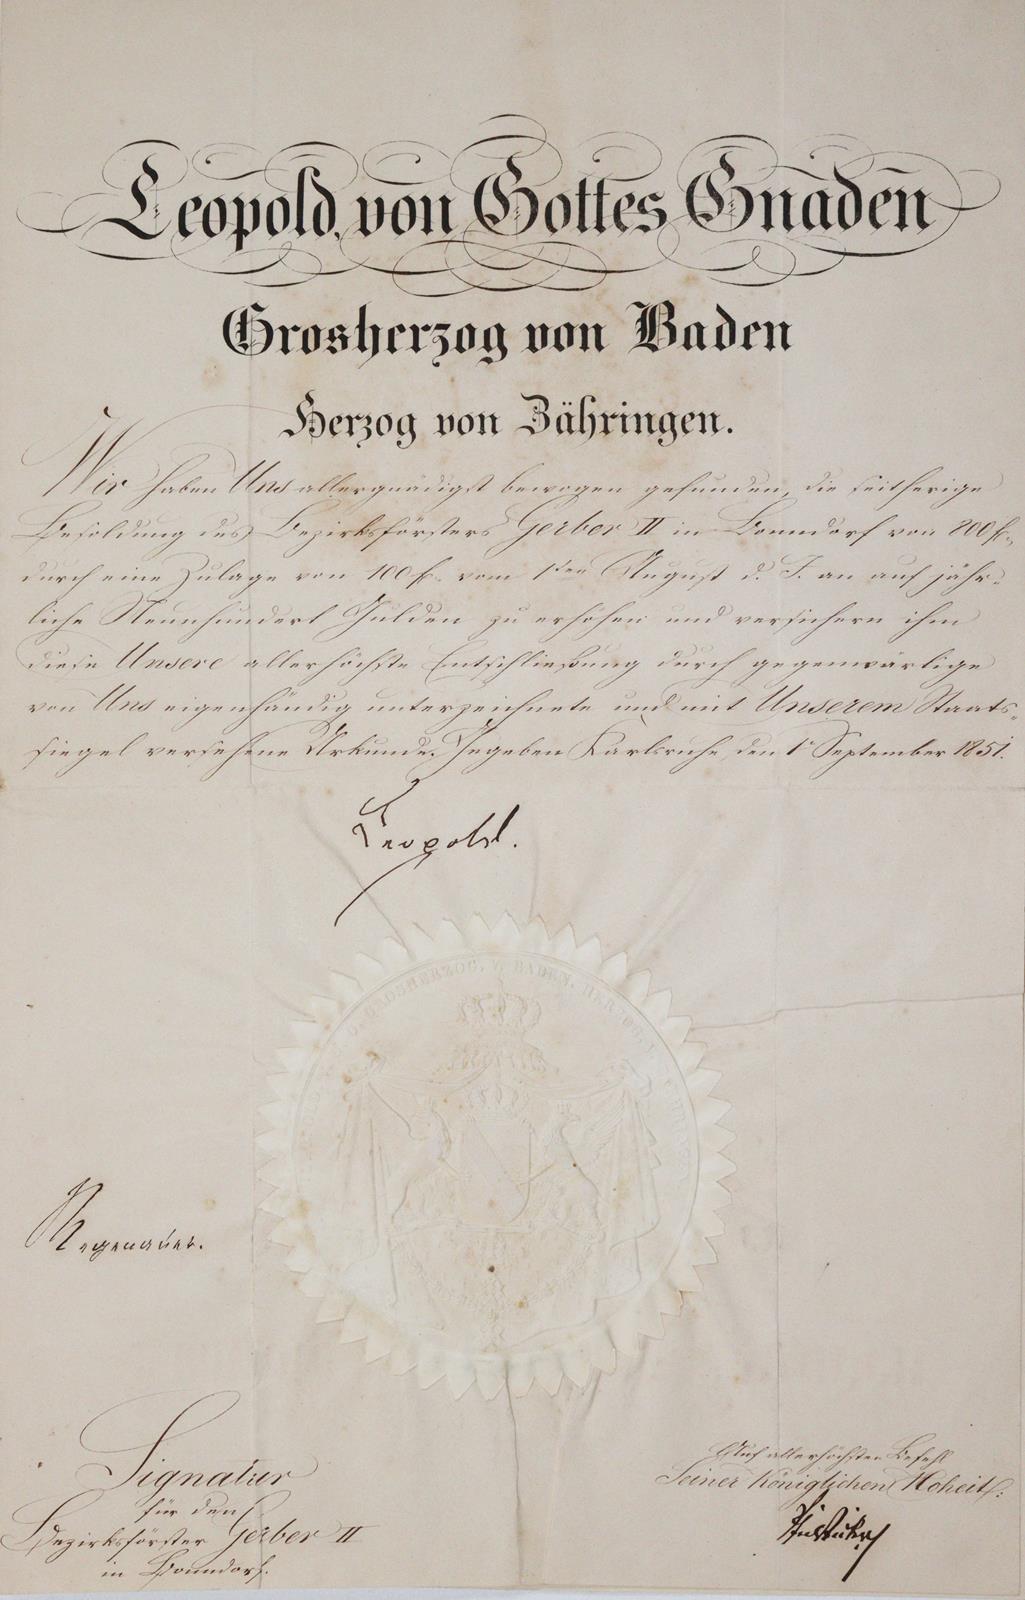 Leopold, von Gottes Gnaden
Grosherzog von Baden
Herzog von Zähringen.
Wir haben Uns allergnädigst bewogen gefunden, die seitherige
Besoldung des Bezirksförsters Gerber II in Bonndorf von 800 f.,
durch eine Zulage von 100 f. vom 1ten August d. J. an auf jähr-
liche Neunhundert Gulden zu erhöhen und versichern ihm
diese Unsere allerhöchste Entschließung durch gegenwärtige
von Uns eigenhändig unterzeichnete und mit Unserem Staats-
siegel versehene Urkunde. Gegeben Karlsruhe, den 1 September 1851.
Leopold.
GROSHERZOG V. BADEN. HERZOG
Regenauer.
Signatur
für den
Bezirksförster Gerber II
in Bonndorf.
Auf allerhöchsten Befehl
Seiner Königlichen Hoheit: